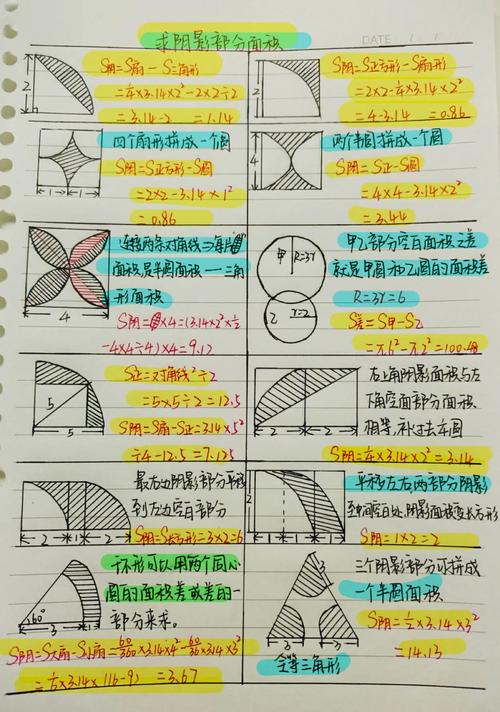 求阴影部分面积
DATE
S阴=S扇-S三角形
=¼×3.14×2²-2×2÷2
=3.14-2 =1.14
2
S阴=S正方形-S扇形
=2×2-¼×3.14×2²
=4-3.14 =0.86
2
四个扇形拼成一个圆
S阴=S正方形-S圆
=2×2-3.14×1²
=0.86
1 1
两个半圆拼成一个圆
S阴=S正-S圆
=4×4-3.14×2²
=3.44
4
连接两条对角线⇒每片
面积是半圆面积-一三角
形面积
S阴= ×4=(3.14×2²×½
-4×4÷4)×4=9.12
4
甲乙部分空白面积之差
就是甲圆和乙圆的面积差
R=3r=6
S差=S甲-S乙
=π.6²-π.2²=100.48
甲 R=3r
乙 r=2
S正=对角线²÷2
=5×5÷2=12.5
S阴=S扇-S正=3.14×5²
÷4-12.5=7.125
5
5
右上角阴影面积与左
下角空面部分面积
相等,补过去¼圆
S阴=¼×3.14×2²=3.14
2 2
最右边阴影部分平移
到左边空白部分
S阴=S长方形=3×2=6
2 1 2
平移左右两部分阴影
到中间空白处,阴影面积变长方形
S阴=1×2=2
2
2 1
环形可以用两个同心
圆的面积差或差的一
部分来求。
60°
3
S阴=S大扇-S小扇=60/360×3.14×4²-60/36×3.14×3²
=⅙×3.14×(16-9)=3.67
三个阴影部分可拼成
一个半圆面积
S阴=½×3.14×3²
=14.13
3
3 3
全等三角形